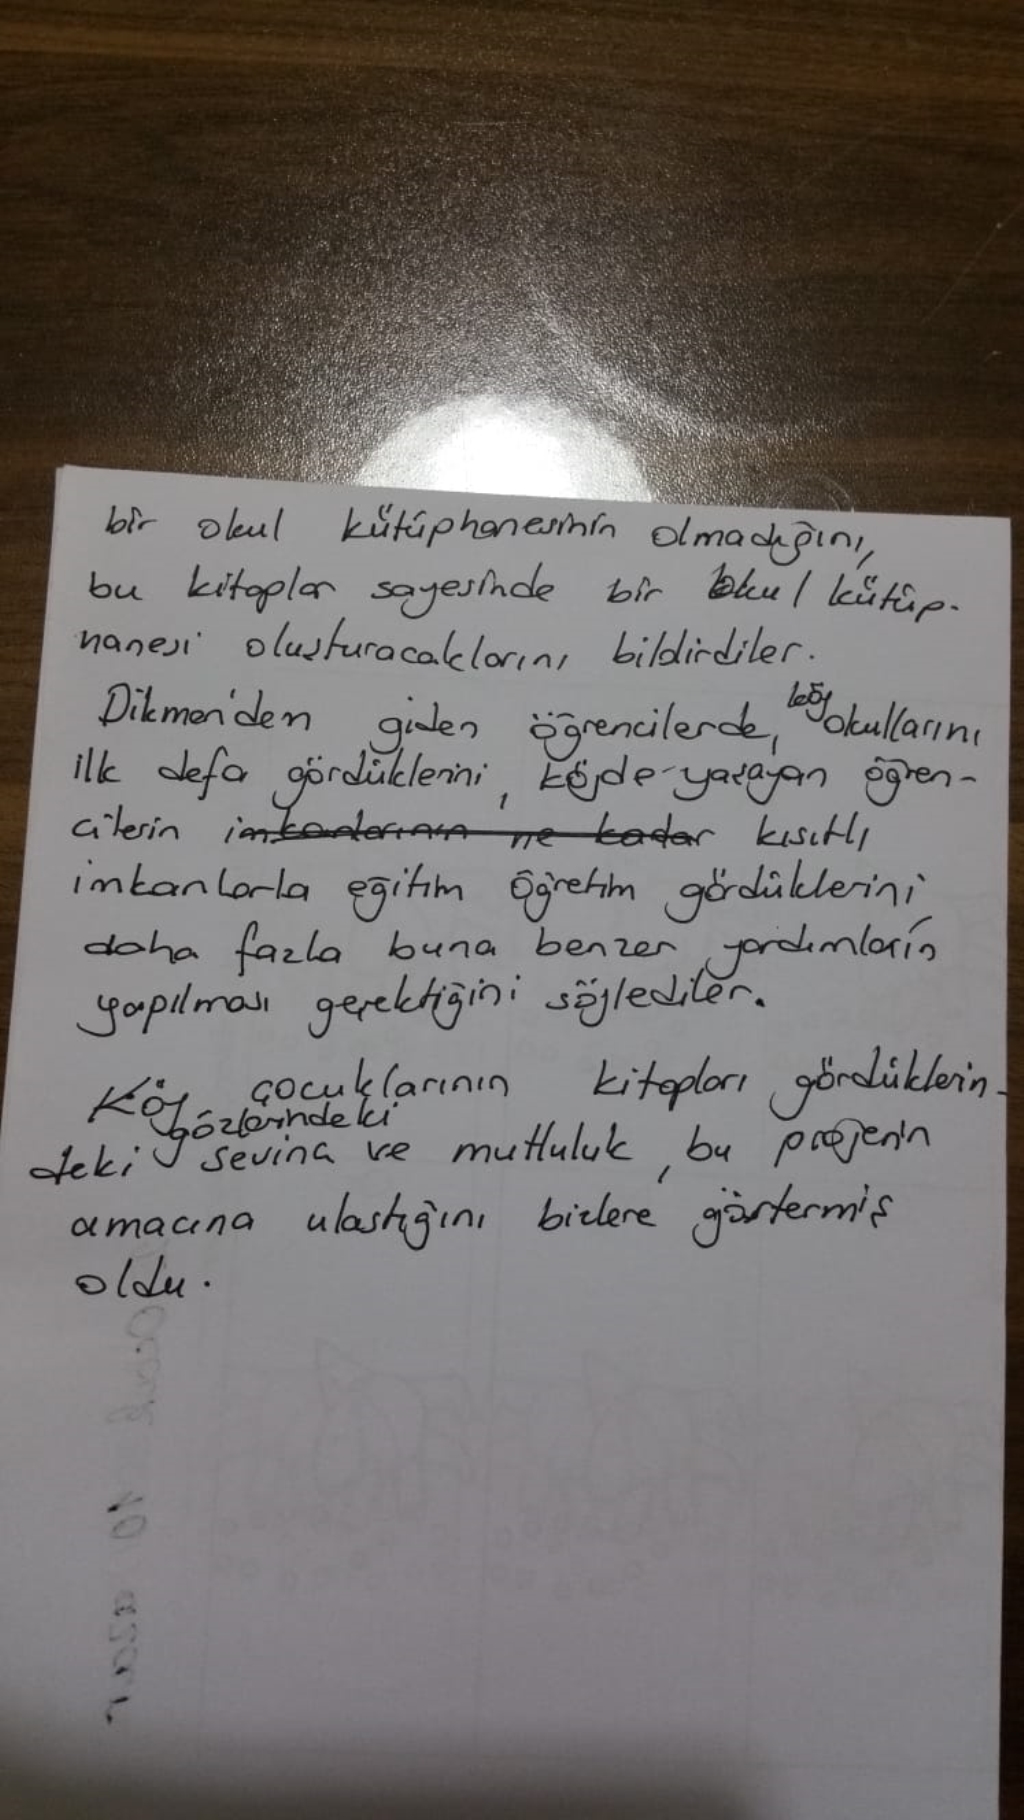 bir okul kütüphanesinin olmadığını,
bu kitaplar sayesinde bir okul kütüp-
hanesi oluşturacaklarını bildirdiler.
Dikmen'den giden öğrencilerde, köy okullarını
ilk defa gördüklerini, köyde yaşayan öğren-
cilerin imkanlarının ne kadar kısıtlı
imkanlarla eğitim öğretim gördüklerini
daha fazla buna benzer yardımların
yapılması gerektiğini söylediler.
Köy çocuklarının kitapları gördüklerin-
gözlerindeki
deki sevinç ve mutluluk, bu projenin
amacına ulaştığını bizlere göstermiş
oldu.